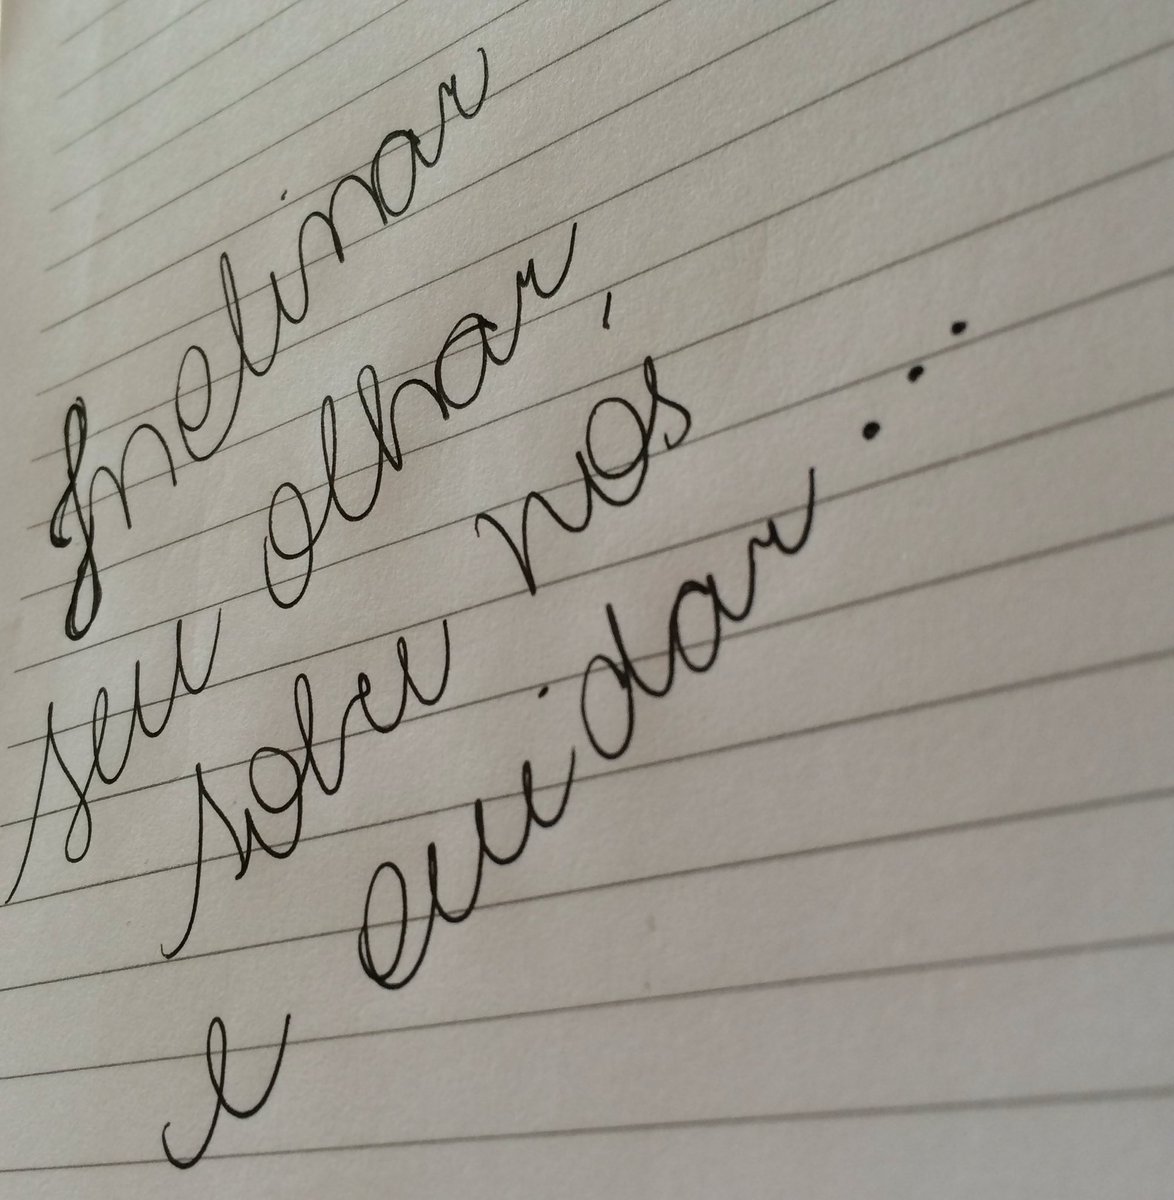 Inclinar
seu olhar
sobre nós
e cuidar...